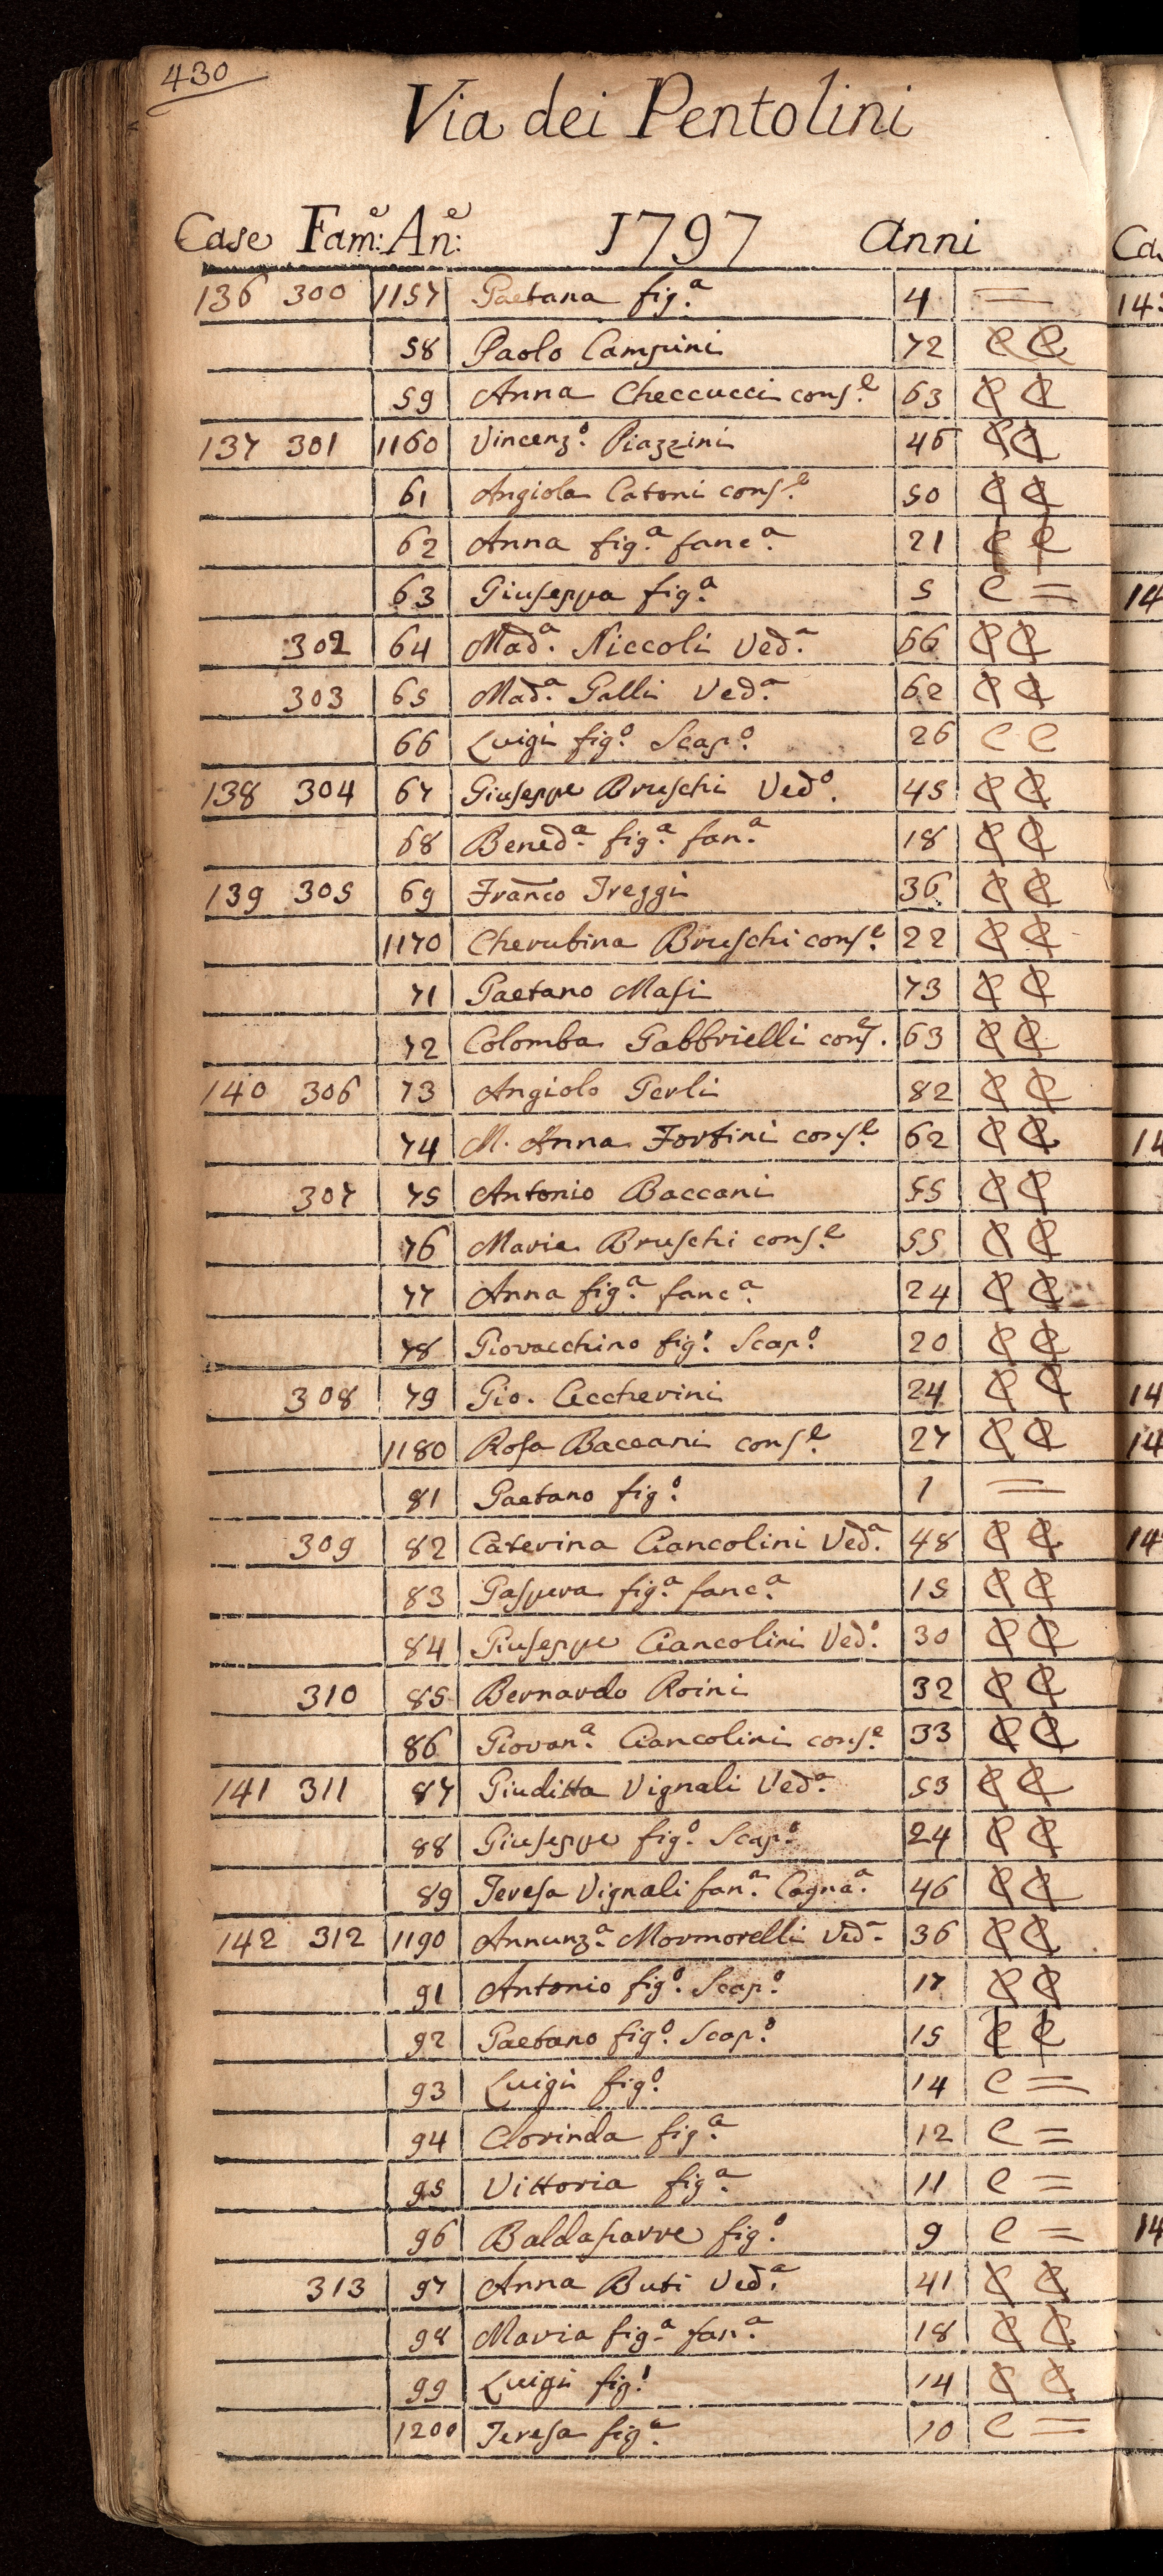 430
Via dei Pentolini
Case Fam:e An:e 1797 Anni
136 300 1157 Gaetana fig.a 4 =
58 Paolo Campini 72 C C
59 Anna Checcucci cons.e 63 C C
137 301 1160 Vincenz.o Piazzini 46 C C
61 Angiola Catoni cons.e 50 C C
62 Anna fig.a fanc.a 21 C C
63 Giuseppa fig.a 5 C =
302 64 Mad.a Niccoli Ved.a 66 C C
303 65 Mad.a Galli Ved.a 62 C C
66 Luigi fig.o Scap.o 26 C C
138 304 67 Giuseppe Bruschi Ved.o 45 C C
68 Bened.a fig.a fan.a 18 C C
139 305 69 Franco Treggi 36 C C
1170 Cherubina Bruschi cons.e 22 C C
71 Gaetano Masi 73 C C
72 Colomba Gabbrielli cons.e 63 C C
140 306 73 Angiolo Gerli 82 C C
74 M. Anna Fortini cons.e 62 C C
307 75 Antonio Baccani 55 C C
76 Maria Bruschi cons.e 55 C C
77 Anna fig.a fanc.a 24 C C
78 Giovacchino fig.o Scap.o 20 C C
308 79 Gio. Ceccherini 24 C C
1180 Rosa Baccani cons.e 27 C C
81 Gaetano fig.o 1 =
309 82 Caterina Ciancolini Ved.a 48 C C
83 Gaspera fig.a fanc.a 15 C C
84 Giuseppe Ciancolini Ved.o 30 C C
310 85 Bernardo Roini 32 C C
86 Giovan.a Ciancolini cons.e 33 C C
141 311 87 Giuditta Vignali Ved.a 53 C C
88 Giuseppe fig.o Scap.o 24 C C
89 Teresa Vignali fan.a Cogna.a 46 C C
142 312 1190 Annunz.a Mormorelli Ved.a 36 C C
91 Antonio fig.o Scap.o 17 C C
92 Gaetano fig.o Scap.o 15 C C
93 Luigi fig.o 14 C =
94 Clorinda fig.a 12 C =
95 Vittoria fig.a 11 C =
96 Baldasarre fig.o 9 C =
313 97 Anna Buti Ved.a 41 C C
98 Maria fig.a fan.a 18 C C
99 Luigi fig.o 14 C C
1200 Teresa fig.a 10 C =